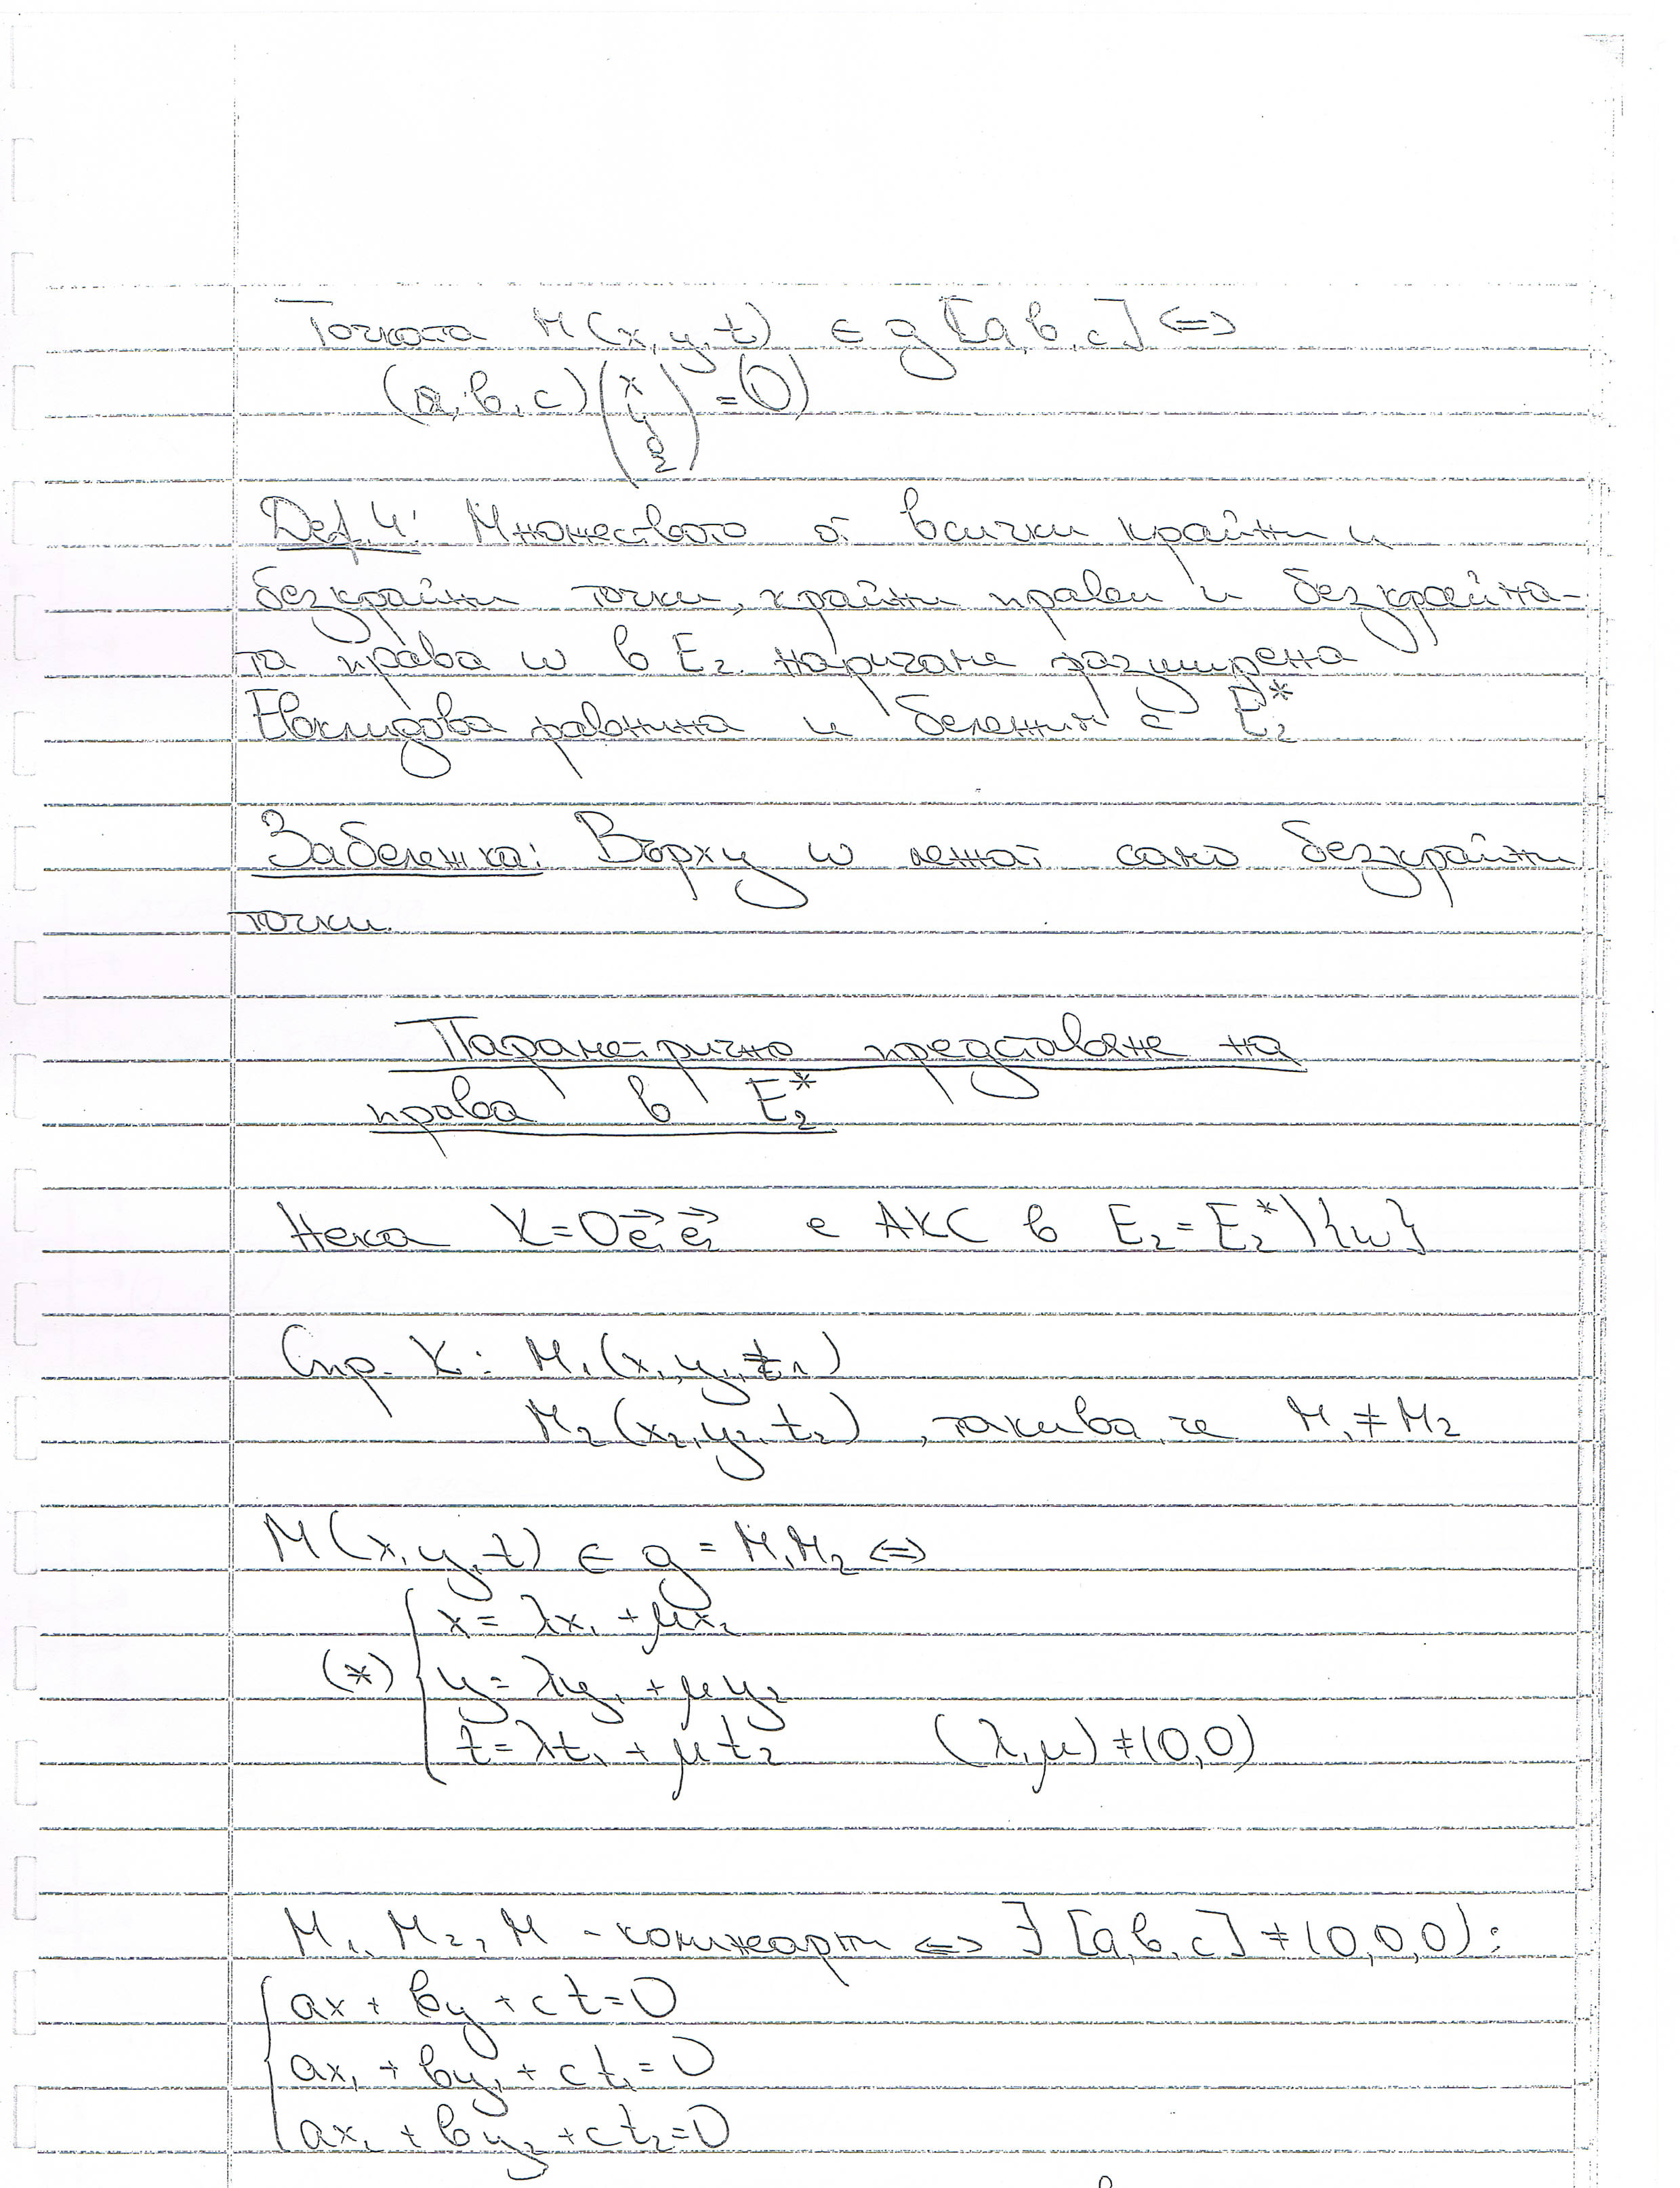 Точката M(x, y, t) ∈ g[a, b, c] ⇔
(a, b, c)(x y z) = 0)
Def. 4: Множеството от всички крайни и
безкрайни точки, крайни прави и безкрайна-
та права ω в E₂ наричаме разширена
Евклидова равнина и бележим с E₂*
Забележка: Върху ω лежат само безкрайни
точки.
Параметрично представяне на
права в E₂*
Нека K=Oe₁e₂ е АКС в E₂=E₂*\{ω}
Спр. K: M₁(x₁, y₁, t₁)
M₂(x₂, y₂, t₂), такива че M₁≠M₂
M(x, y, t) ∈ g = M₁M₂ ⇔
x = λx₁ + μx₂
(*) y = λy₁ + μy₂
t = λt₁ + μt₂ (λ, μ) ≠ (0,0)
M₁, M₂, M - колинеарни ⇔ ∃ [a, b, c] ≠ (0,0,0):
ax + by + ct = 0
ax₁ + by₁ + ct₁ = 0
ax₂ + by₂ + ct₂ = 0